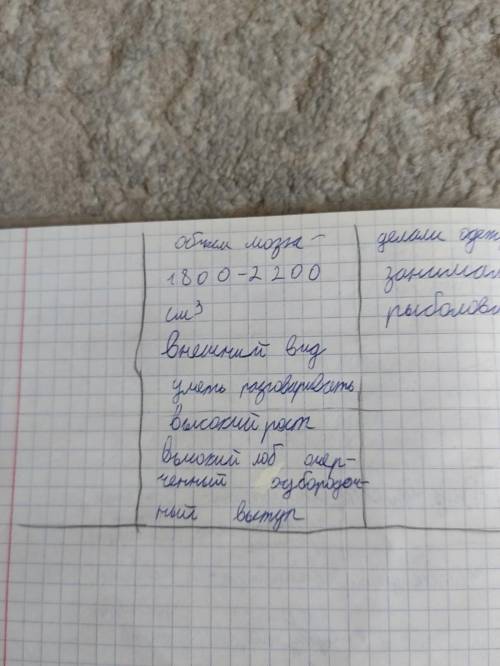 обжем мозга -
1800-2200
см³
внешний вид
уметь разговаривать
высокий рост
высокий лоб очер-
ченный подбородоч-
ный выступ
делали одеж
занимал
рыболов